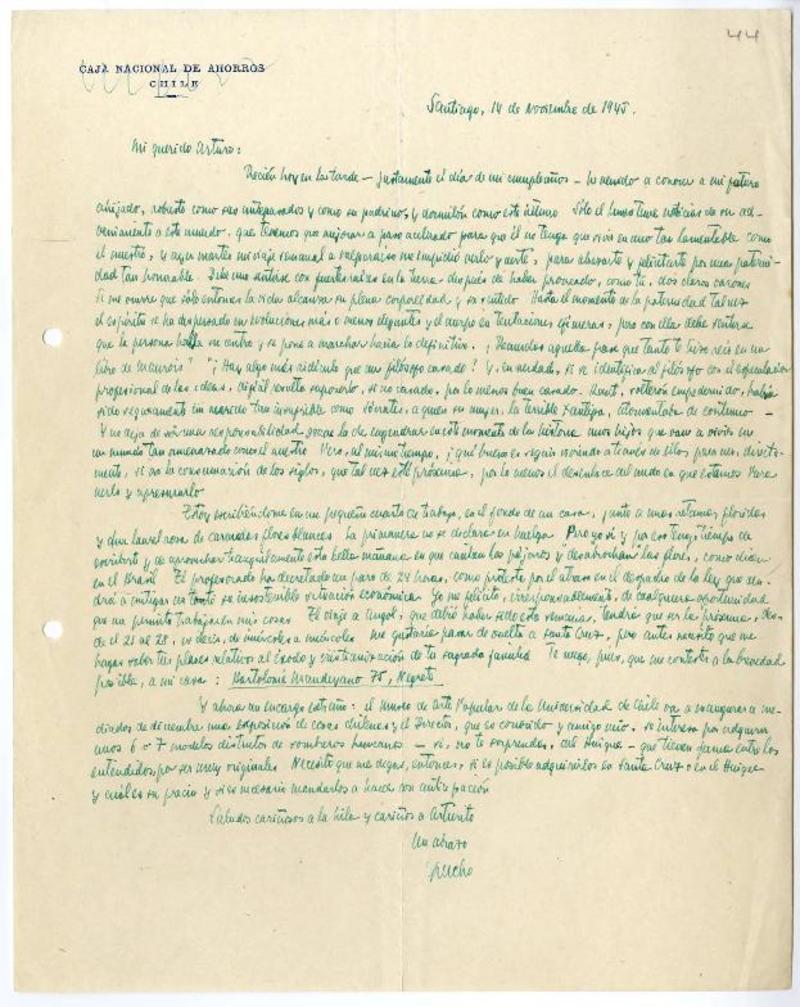 44
CAJA NACIONAL DE AHORROS
CHILE
Santiago, 14 de Noviembre de 1945.
Mi querido Arturo:
Recién hoy en la tarde — justamente el día de mi cumpleaños — he venido a conocer a mi futuro
ahijado, robusto como sus antepasados y como su padrino, y dormilón como este último. Sólo el lunes tuve noticias de su ad-
venimiento a este mundo, que tenemos que mejorar a paso acelerado para que él no tenga que vivir en uno tan lamentable como
el nuestro, y ayer martes mi viaje semanal a Valparaíso me impidió verlo y verte, para abrazarte y felicitarte por una paterni-
dad tan honorable. Debe uno sentirse con fuertes raíces en la tierra después de haber procreado, como tú, dos claros varones
Se me ocurre que sólo entonces la vida alcanza su plena corporeidad y su sentido. Hasta el momento de la paternidad tal vez
el espíritu se ha dispersado en evoluciones más o menos elegantes y el cuerpo en tentaciones efímeras, pero con ella debe sentirse
que la persona halla su centro y se pone a marchar hacia lo definitivo. ¿Recuerdas aquella frase que tanto te hizo reir en un
libro de Maurois? "¿Hay algo más ridículo que un filósofo casado? Y, en verdad, si se identifica al filósofo con el especulador
profesional de las ideas, difícil resulta suponerlo, si no casado, por lo menos buen casado. Kant, solterón empedernido, habría
sido seguramente un marido tan insufrible como Sócrates, a quien su mujer, la terrible Xantipa, atormentaba de continuo —
Y no deja de ser una responsabilidad la de engendrar en este momento de la historia unos hijos que van a vivir en
un mundo tan amenazado como el nuestro. Pero, al mismo tiempo, ¡qué bueno es seguir viviendo a través de ellos, para ver, directa-
mente, si no la consumación de los siglos, que tal vez esté próxima, por lo menos el desenlace del nudo en que estamos. Para
verlo y apresurarlo.
Estoy escribiéndome en un pequeño cuarto de trabajo, en el fondo de mi casa, junto a unas retamas floridas
y a un laurel rosa de caramadas flores blancas. La primavera no se declara en huelga. Pero yo sí y por eso tengo tiempo de
escribirte y de aprovechar tranquilamente esta bella mañana en que cantan los pájaros y "desabrochan" las flores, como dicen
en el Brasil. El profesorado ha decretado un paro de 24 horas, como protesta por el atraso en el despacho de la ley que ven-
drá a mitigar un tanto su insostenible situación económica. Yo me felicito, irresponsablemente, de cualquiera oportunidad
que me permita trabajar en mis cosas. El viaje a Angol, que debió haber sido esta semana, tendrá que ser la próxima, des-
de el 21 al 28, es decir, de miércoles a miércoles. Me gustaría pasar de vuelta a Santa Cruz, pero antes necesito que me
hagas saber tus planes relativos al éxodo y cristianización de tu sagrada familia. Te ruego, pues, que me contestes a la brevedad
posible, a mi casa: Bartolomé Mandujano 75, Negrete
Y ahora un encargo extraño: el Museo de Arte Popular de la Universidad de Chile va a inaugurar a me-
diados de diciembre una exposición de cosas chilenas y el Director, que es conocido y amigo mío, se interesa por adquirir
unos 6 o 7 modelos distintos de sombreros huicanos — sí, no te sorprendas, del Huique — que tienen fama entre los
entendidos por ser muy originales. Necesito que me digas, entonces, si es posible adquirirlos en Santa Cruz o en el Huique
y cuál es su precio y si es necesario mandarlos a hacer con anticipación
Saludos cariñosos a la Lila y cariños a Arturito
Un abrazo
Pucho